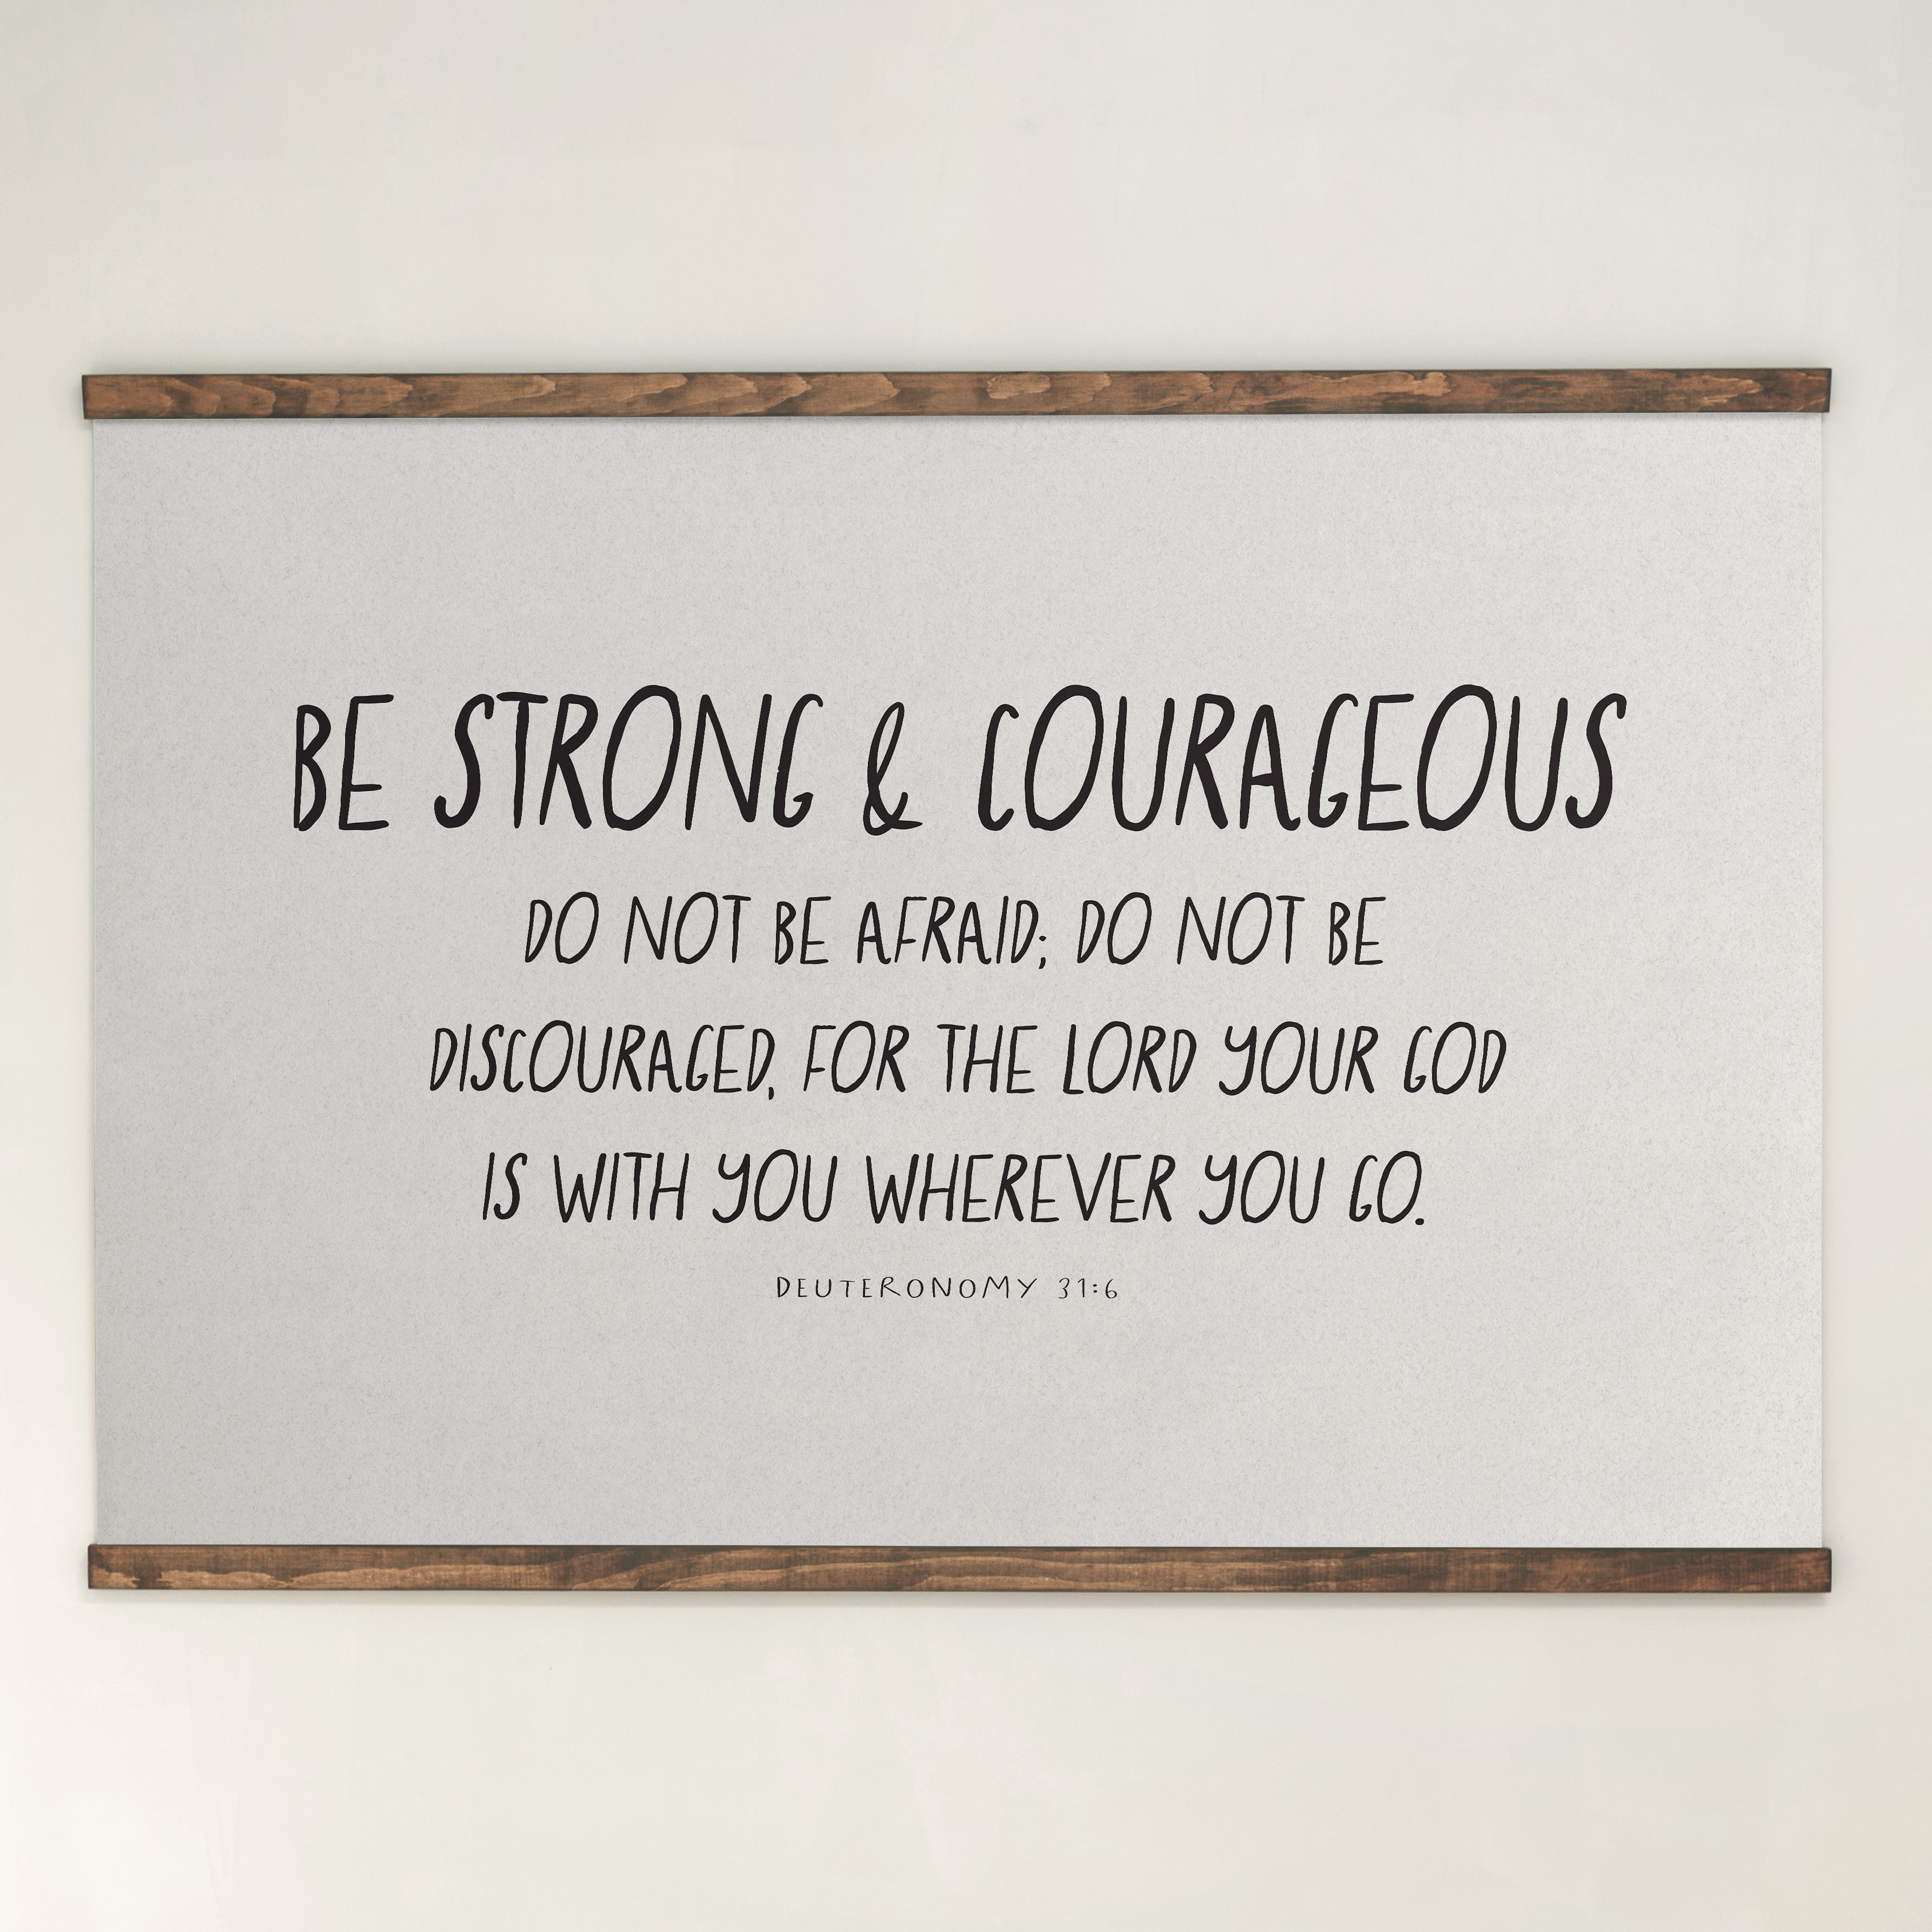 BE STRONG & COURAGEOUS
DO NOT BE AFRAID; DO NOT BE
DISCOURAGED, FOR THE LORD YOUR GOD
IS WITH YOU WHEREVER YOU GO.
DEUTERONOMY 31:6